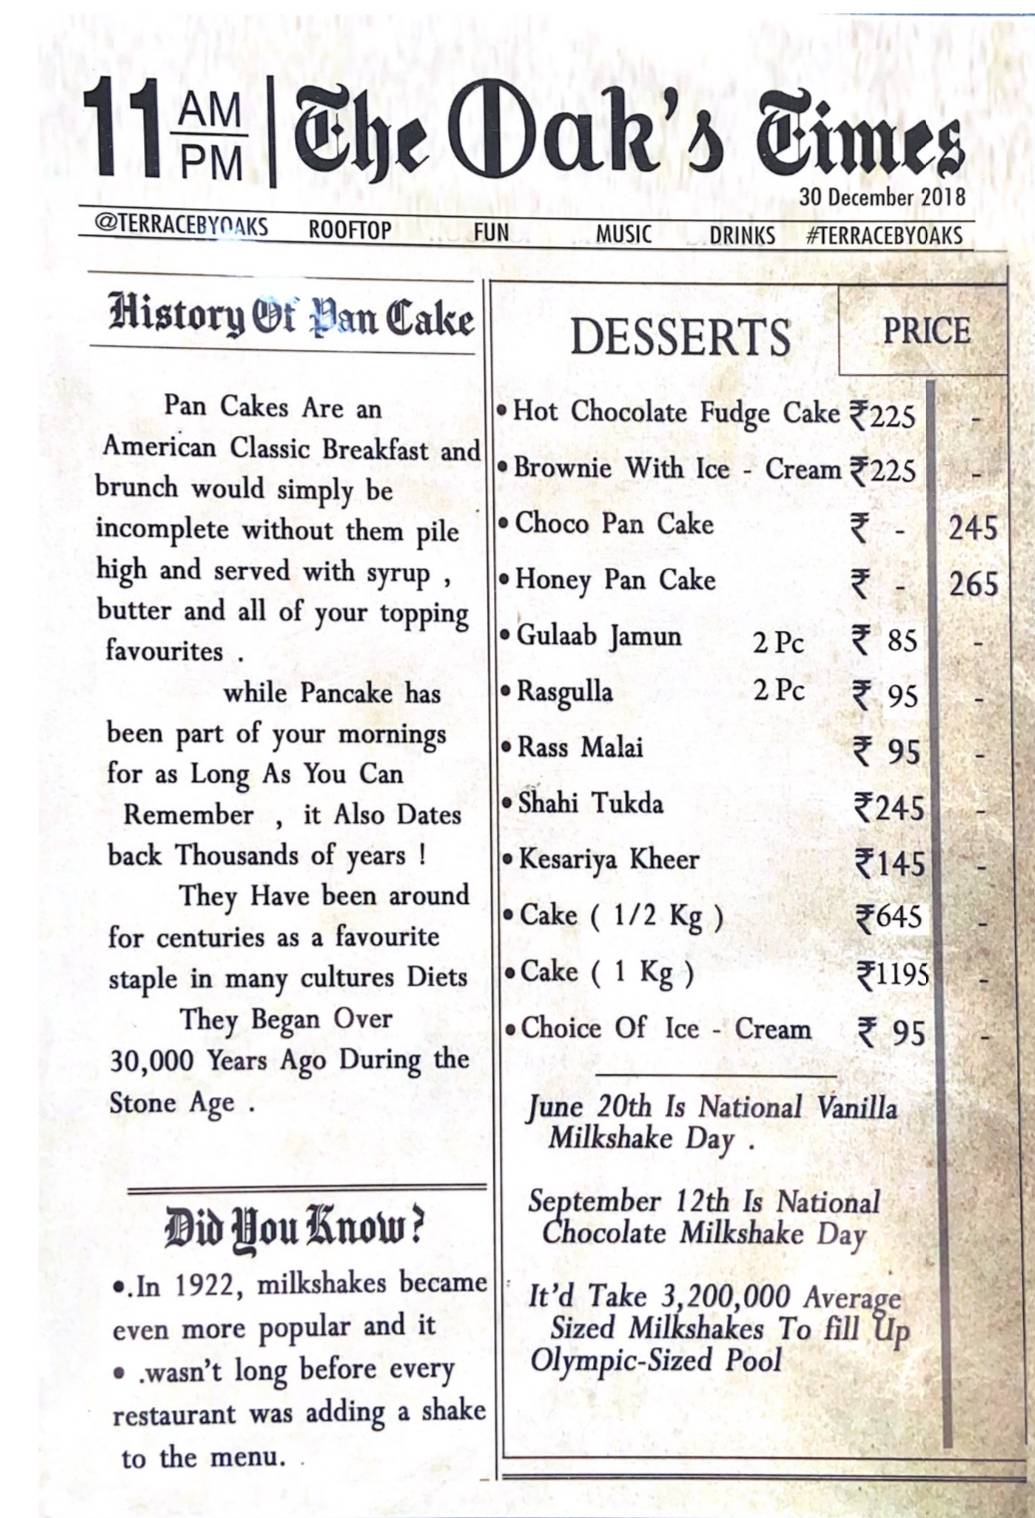 11 AM
PM
The Oak's Times
30 December 2018
@TERRACEBYOAKS ROOFTOP FUN MUSIC DRINKS #TERRACEBYOAKS
History Of Pan Cake
Pan Cakes Are an
American Classic Breakfast and
brunch would simply be
incomplete without them pile
high and served with syrup ,
butter and all of your topping
favourites .
while Pancake has
been part of your mornings
for as Long As You Can
Remember , it Also Dates
back Thousands of years !
They Have been around
for centuries as a favourite
staple in many cultures Diets
They Began Over
30,000 Years Ago During the
Stone Age .
Did You Know?
•.In 1922, milkshakes became
even more popular and it
• .wasn't long before every
restaurant was adding a shake
to the menu.
DESSERTS PRICE
• Hot Chocolate Fudge Cake ₹225 -
• Brownie With Ice - Cream ₹225 -
• Choco Pan Cake ₹ - 245
• Honey Pan Cake ₹ - 265
• Gulaab Jamun 2 Pc ₹ 85 -
• Rasgulla 2 Pc ₹ 95 -
• Rass Malai ₹ 95 -
• Shahi Tukda ₹245 -
• Kesariya Kheer ₹145 -
• Cake ( 1/2 Kg ) ₹645 -
• Cake ( 1 Kg ) ₹1195 -
• Choice Of Ice - Cream ₹ 95 -
June 20th Is National Vanilla
Milkshake Day .
September 12th Is National
Chocolate Milkshake Day
It'd Take 3,200,000 Average
Sized Milkshakes To fill Up
Olympic-Sized Pool